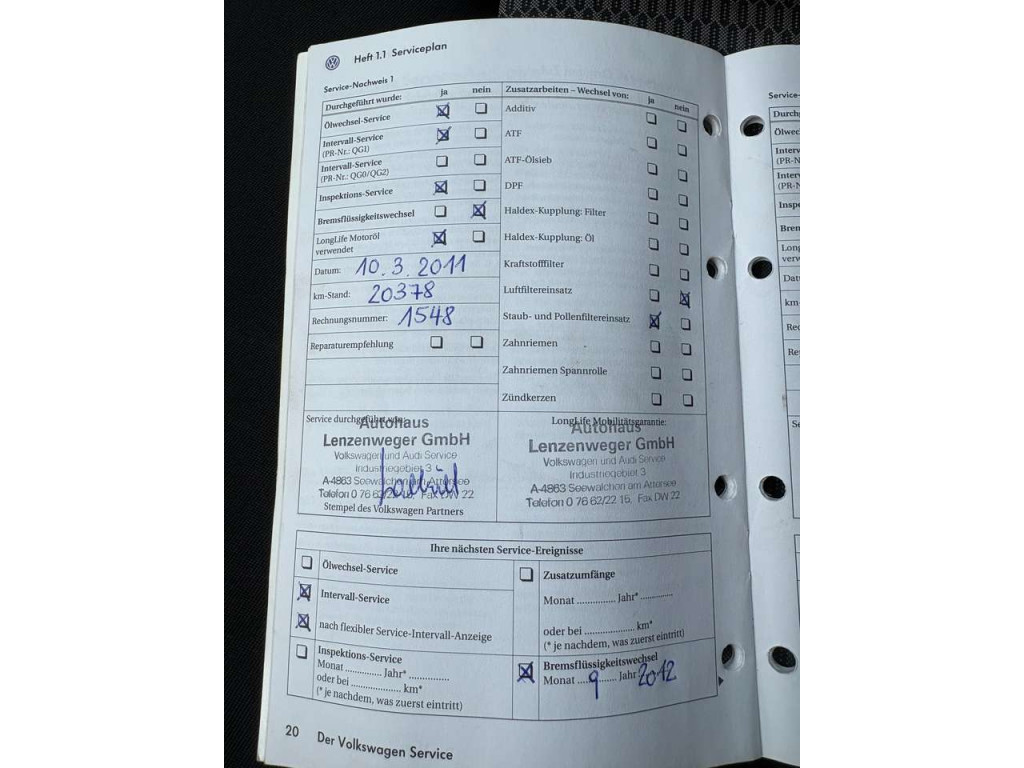 Heft 1.1 Serviceplan
Service-Nachweis 1
Durchgeführt wurde: ja nein
Ölwechsel-Service
Intervall-Service
(PR-Nr.: QG1)
Intervall-Service
(PR-Nr.: QG0/QG2)
Inspektions-Service
Bremsflüssigkeitswechsel
LongLife Motoröl
verwendet
Datum: 10.3.2011
km-Stand: 20378
Rechnungsnummer: 1548
Reparaturempfehlung
Zusatzarbeiten – Wechsel von: ja nein
Additiv
ATF
ATF-Ölsieb
DPF
Haldex-Kupplung: Filter
Haldex-Kupplung: Öl
Kraftstofffilter
Luftfiltereinsatz
Staub- und Pollenfiltereinsatz
Zahnriemen
Zahnriemen Spannrolle
Zündkerzen
Service durchgeführt von:
Autohaus
Lenzenweger GmbH
Volkswagen und Audi Service
Industriegebiet 3
A-4863 Seewalchen am Attersee
Telefon 0 76 62/22 15, Fax DW 22
Stempel des Volkswagen Partners
LongLife Mobilitätsgarantie:
Autohaus
Lenzenweger GmbH
Volkswagen und Audi Service
Industriegebiet 3
A-4863 Seewalchen am Attersee
Telefon 0 76 62/22 15, Fax DW 22
Ihre nächsten Service-Ereignisse
Ölwechsel-Service
Intervall-Service
nach flexibler Service-Intervall-Anzeige
Inspektions-Service
Monat ............... Jahr* ...............
oder bei .................... km*
(* je nachdem, was zuerst eintritt)
Zusatzumfänge
Monat ............... Jahr* ...............
oder bei .................... km*
(* je nachdem, was zuerst eintritt)
Bremsflüssigkeitswechsel
Monat 9 Jahr 2012
20 Der Volkswagen Service